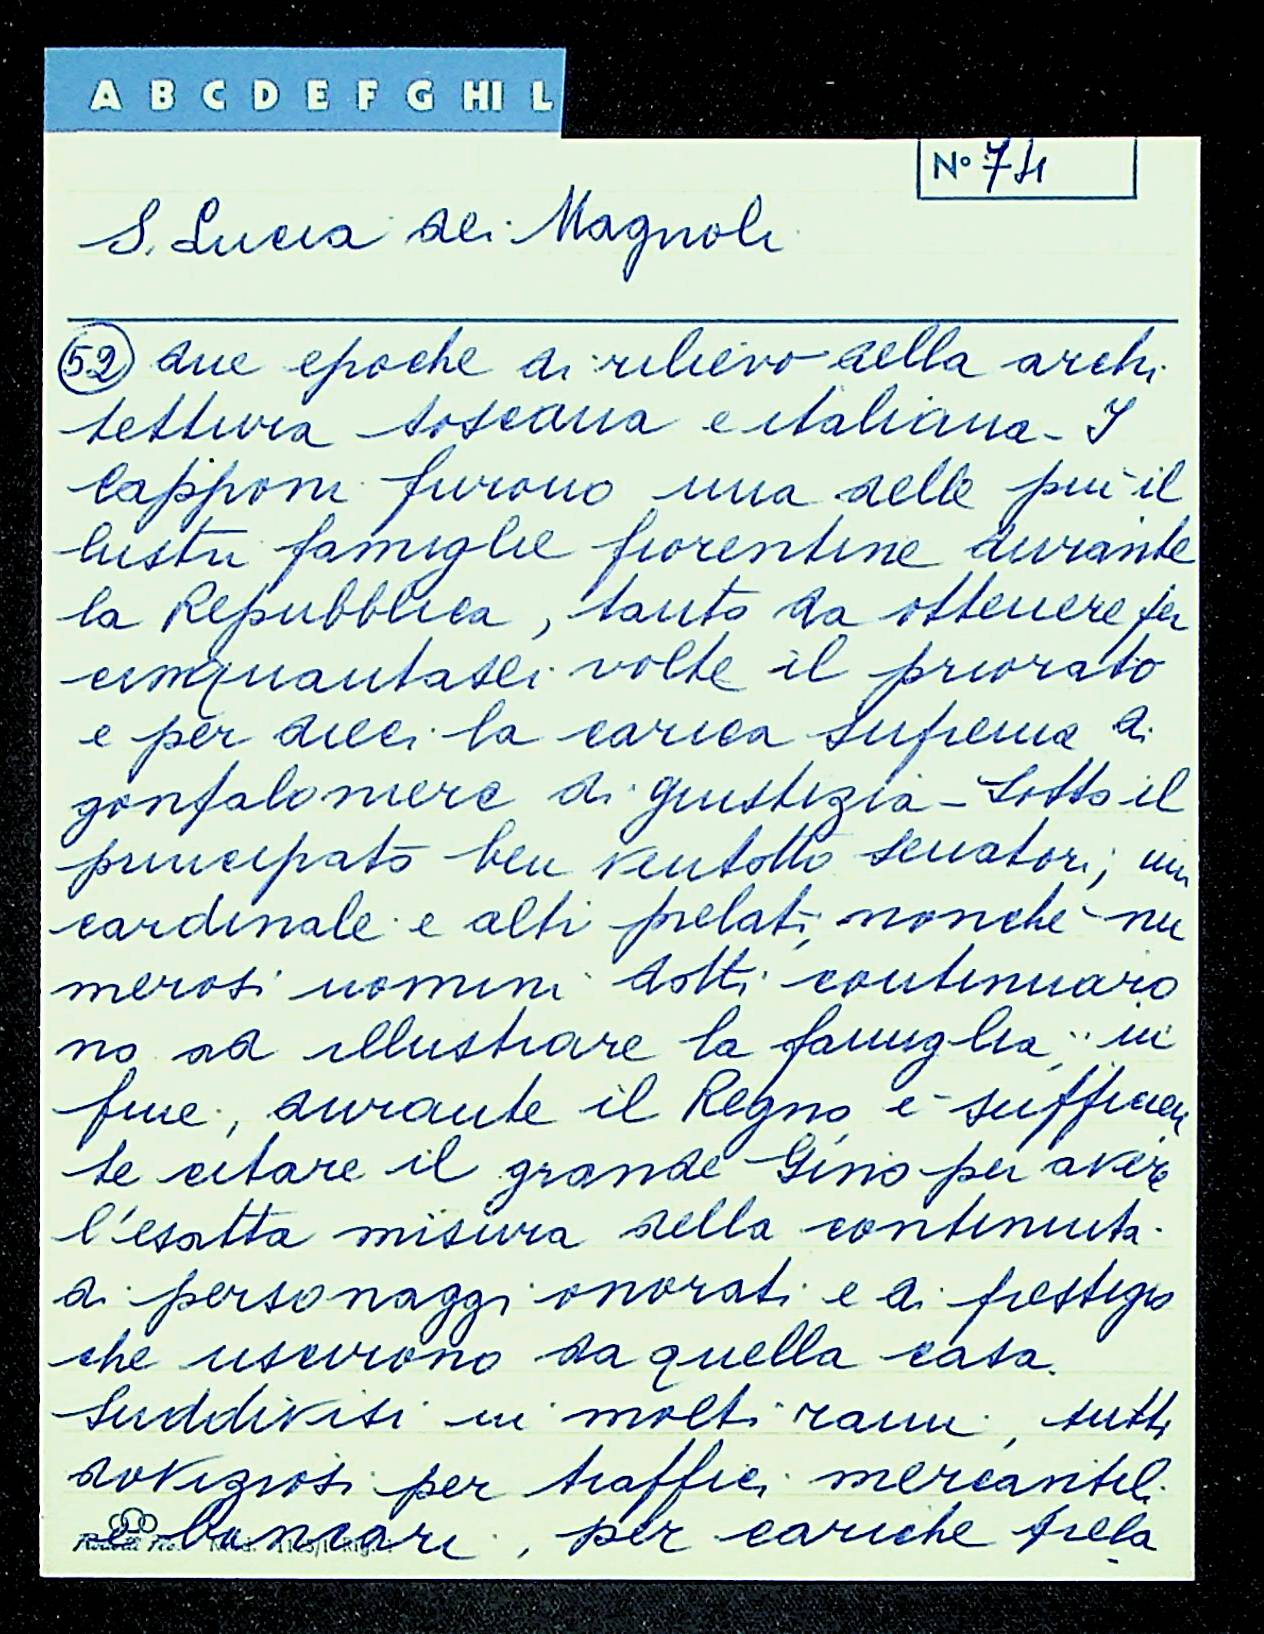 A B C D E F G HI L
Nº 74
S. Lucia dei Magnoli
52 due epoche di rilievo della archi
tettura toscana e italiana - I
Capponi furono una delle più il
lustri famiglie fiorentine durante
la Repubblica, tanto da ottenere per
cinquantasei volte il priorato
e per dieci la carica suprema di
gonfaloniere di giustizia - Sotto il
principato ben ventotto senatori; un
cardinale e alti prelati, nonché nu
merosi uomini dotti continuaro
no ad illustrare la famiglia; in
fine, durante il Regno, è sufficien
te citare il grande Gino per avere
l'esatta misura della continuità
di personaggi onorati e di prestigio
che uscirono da quella casa.
Suddivisi in molti rami, tutti
doviziosi per traffici mercantili
e bancari, per cariche prela